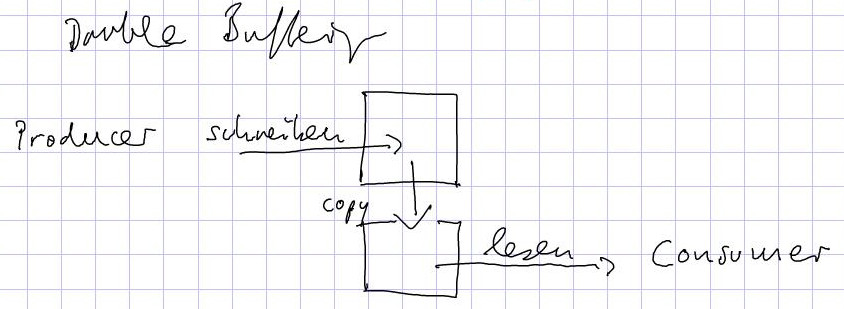 Double Buffering
Producer schreiben
copy
lesen Consumer